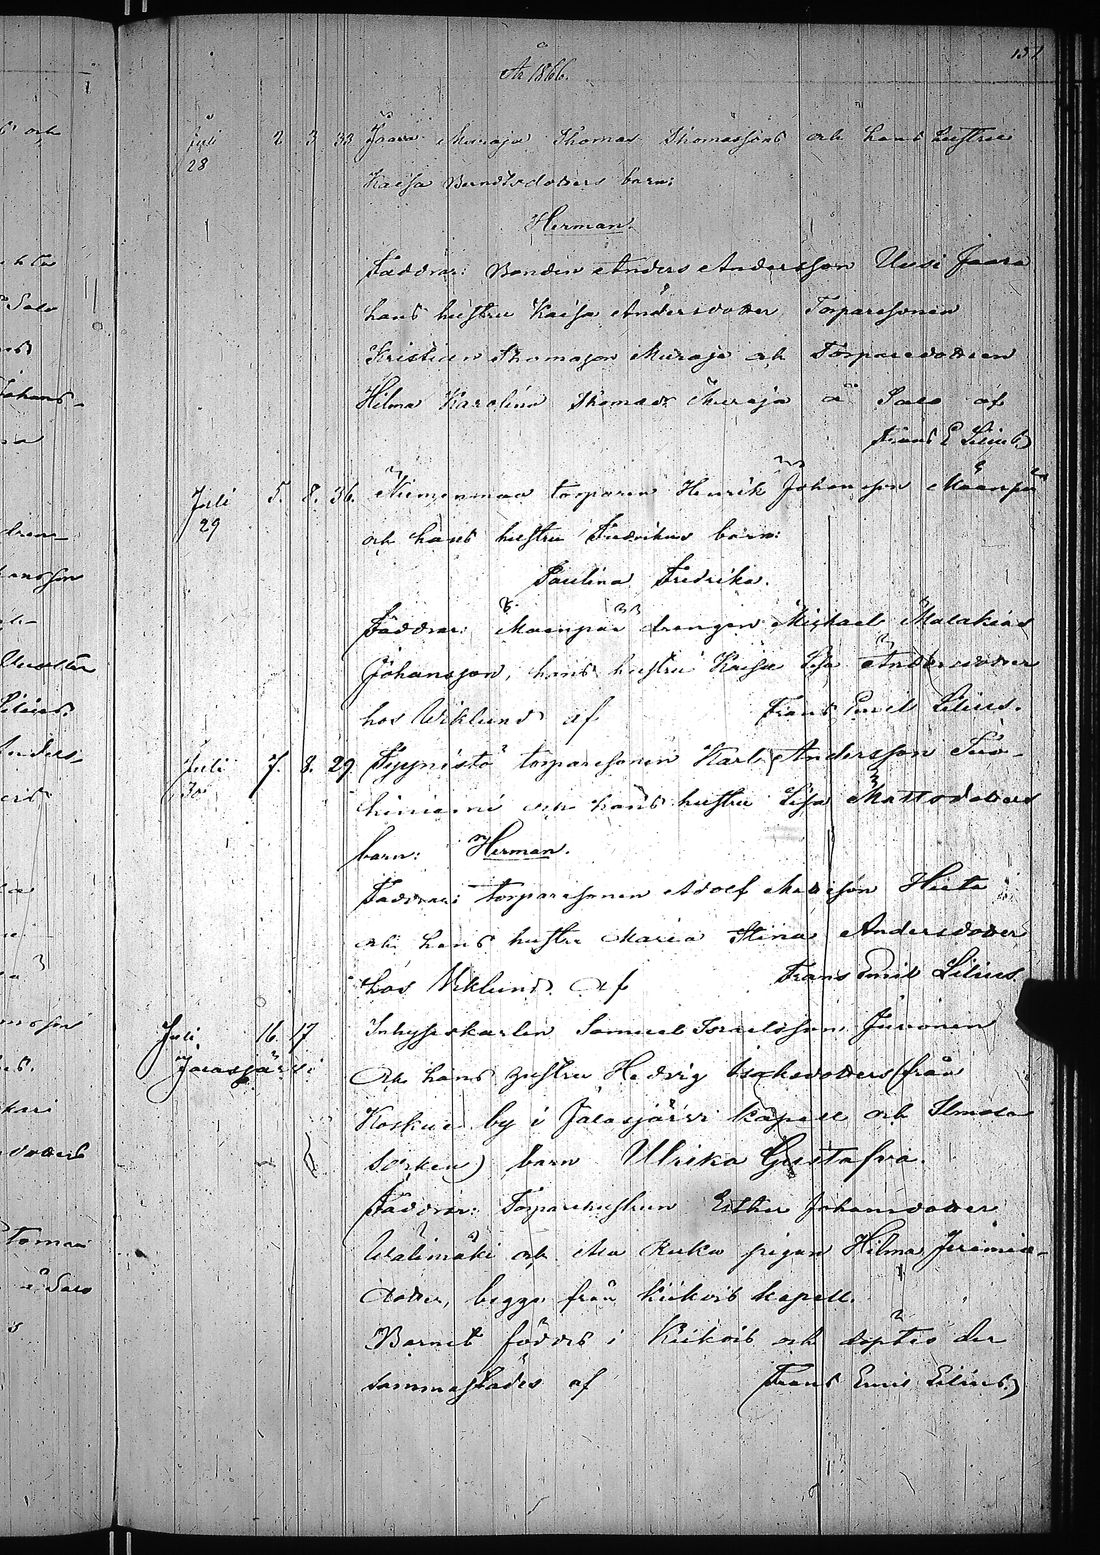 År 1866.
137
Juli 28 2 3 33 Jaara Muraja Thomas Thomassons och hans hustru
Kaisa Berndtsdotters barn:
Herman.
Faddrar: Bonden Anders Andersson Uusi Jaara
hans hustru Kaisa Andersdotter Torparesonen
Kristian Thomason Muraja och Torparedottren
Hilma Karolina Thomasd. Muraja à Salo af
Frans E Lilius
Juli 29 5. 8. 36. torparen Henrik Johansson Määnpää
och hans hustru Fredrikas barn:
Paulina Fredrika.
Faddrar: Maenpää drängen Michael Malakias
Johansson, hans hustru Kaisa Lisa Andersdotter
hos Wiklund af Frans Emil Lilius.
Juli 30 7. 8. 29 torparesonen Karl Andersson Suo-
niemi och hans hustru Lisa Mattsdotters
barn: Herman.
Faddrar: torparesonen Adolf Mattsson
och hans hustru Maria Stina Andersdotter
hos Wiklund. Af Frans Emil Lilius.
Juli 16. 17 Inhyseskarlen Samuel Israelsson
Jalasjärvi och hans hustru Hedvig Isaksdotters (från
Koskue by i Jalasjärvi kapell och Ilmola
socken) barn Ulrika Gustafva.
Faddrar: Torparehustrun Esther Johansdotter
Wälimäki och pigan Hilma Jeremia-
dotter, begge från Kiikois kapell.
Barnet föddes i Kiikois och döptes der
sammastädes af Frans Emil Lilius.